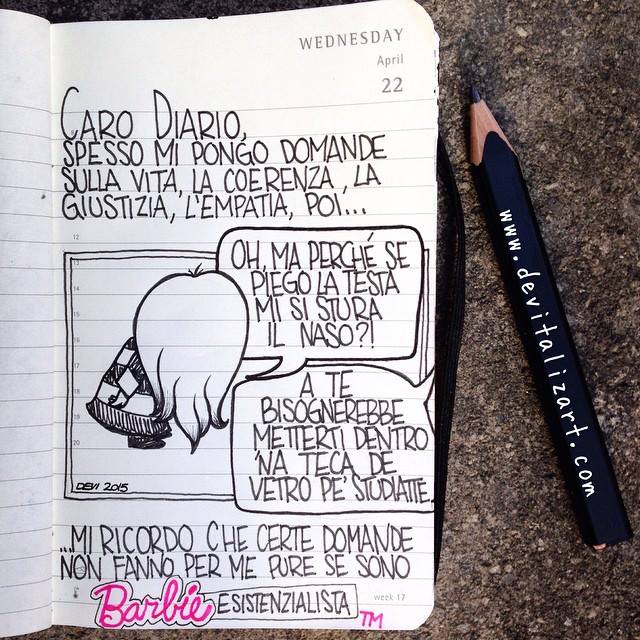 WEDNESDAY
April
22
CARO DIARIO,
SPESSO MI PONGO DOMANDE
SULLA VITA, LA COERENZA, LA
GIUSTIZIA, L'EMPATIA, POI...
12
13
14
15
OH, MA PERCHÉ SE
PIEGO LA TESTA
MI SI STURA
IL NASO?!
A TE
BISOGNEREBBE
METTERTI DENTRO
'NA TECA DE
VETRO PE' STUDIATTE.
17
18
19
20
DEVI 2015
...MI RICORDO CHE CERTE DOMANDE
NON FANNO PER ME PURE SE SONO
Barbie ESISTENZIALISTA TM
week 17
www.devitalizart.com